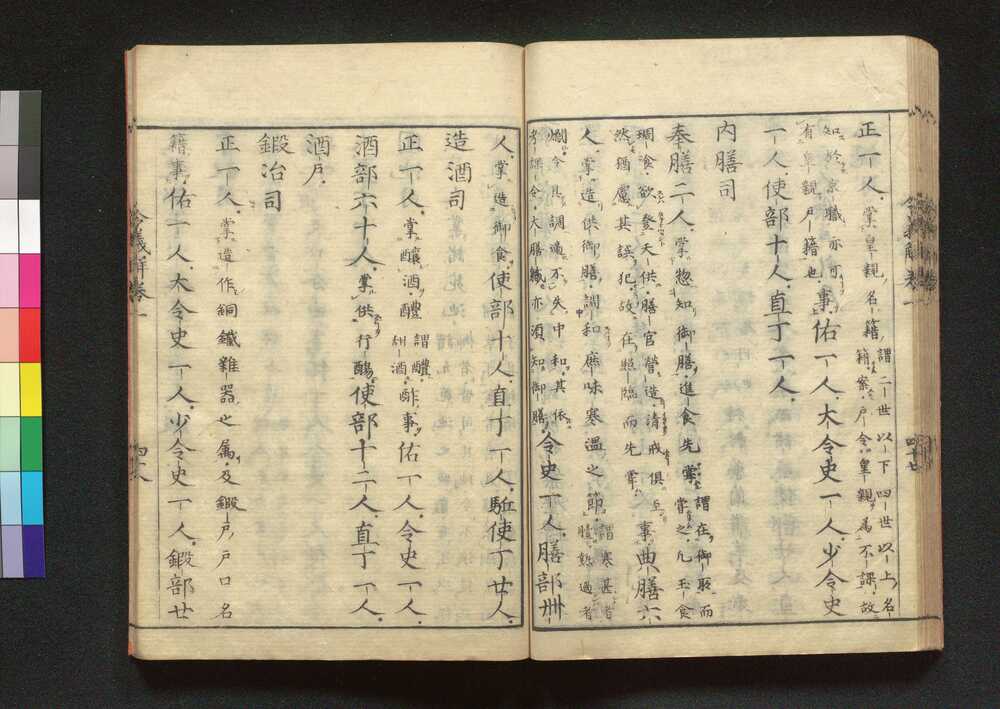 正一人。掌皇親名籍謂二世以下四世以上名
籍案戸令皇親為不課故
知於京職亦可
有皇親戸籍也事佑一人大令史一人少令史
一人使部十人直丁一人
内膳司
奉膳二人掌惣知御膳進食先嘗謂在御所而
嘗之凡玉食
食欲登天供膳官營造清戒俱至
然猶慮其誤犯故在照臨而先甞事典膳六
人掌造供御膳調和庶味寒温之節謂寒甚者
熱過者
爛令其調適不失中和其依
考課令大膳職亦須知御膳令史一人膳部卌
令義解巻一
四十七
人掌造御食使部十人直丁一人駈使丁廿人
造酒司
正一人掌釀酒醴謂醴
甜酒酢事佑一人令史一人
酒部六十人掌供行觴使部十二人直丁一人
酒戸
鍛冶司
正一人掌造作銅鐵雜器之属及鍛戸戸口名
籍事佑一人大令史一人少令史一人鍛部廿
令義解巻一
四十八